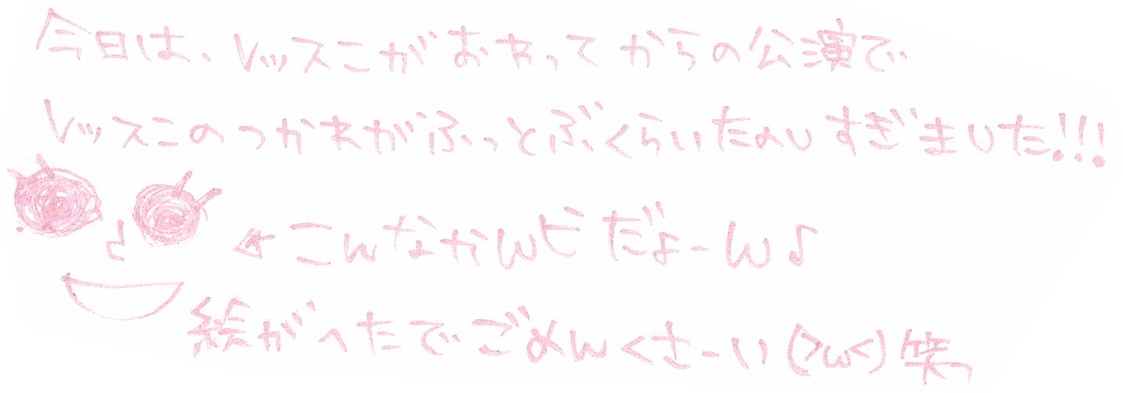 今日は、レッスンがおわってからの公演で
レッスンのつかれがふっとぶくらいたのしすぎました!!!
←こんなかんじだよーん♪
絵がへたでごめんくさーい(>ω<)笑